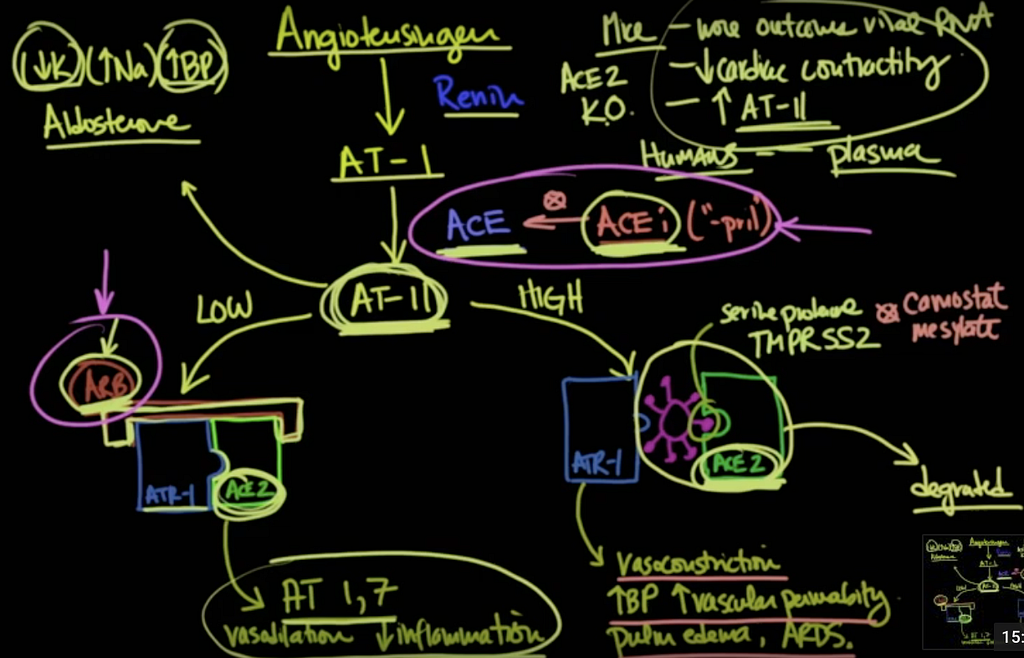 (↓K)(↑Na)(↑BP)
Aldosterone
Angiotensingen
Renin
AT-1
Mice - more outcome vital RNA
ACE2 - ↓cardiac contractity
K.O. - ↑ AT-II
Humans - plasma
ACE ← ⊗ ACEi ("-pril")
AT-II
LOW
HIGH
serine protease
TMPRSS2
⊗ Camostat
mesylate
ARB
ATR-1
ACE2
ATR-1
ACE2
degrated
AT 1,7
vasodilation ↓inflammation
Vasoconstriction
↑BP ↑vascular permability
pulm edema, ARDS.
15: